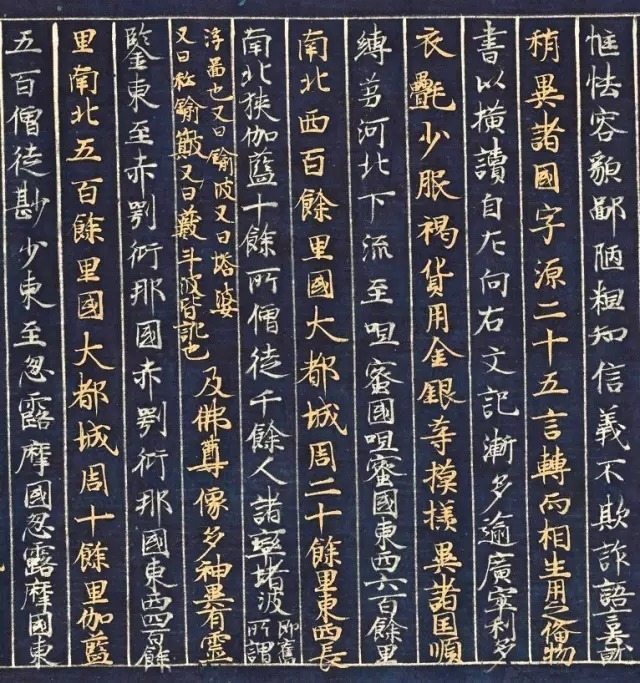 恇怯容貌鄙陋粗知信義不欺詐語言去就
稍異諸國字源二十五言轉而相生用之備物
書以橫讀自左向右文記漸多逾廣寧利多
衣氎少服褐貨用金銀等摸樣異諸国順
縛芻河北下流至呾蜜國呾蜜國東西六百餘里
南北西百餘里國大都城周二十餘里東西長
南北狹伽藍十餘所僧徒千餘人諸窣堵波即舊所謂
浮啚也又曰鍮波又曰塔婆又曰私鍮簸又曰藪斗波皆訛也及佛尊像多神異有靈
鑒東至赤鄂衍那國赤鄂衍那國東西四百餘
里南北五百餘里國大都城周十餘里伽藍
五百僧徒尠少東至忽露摩國忽露摩國東